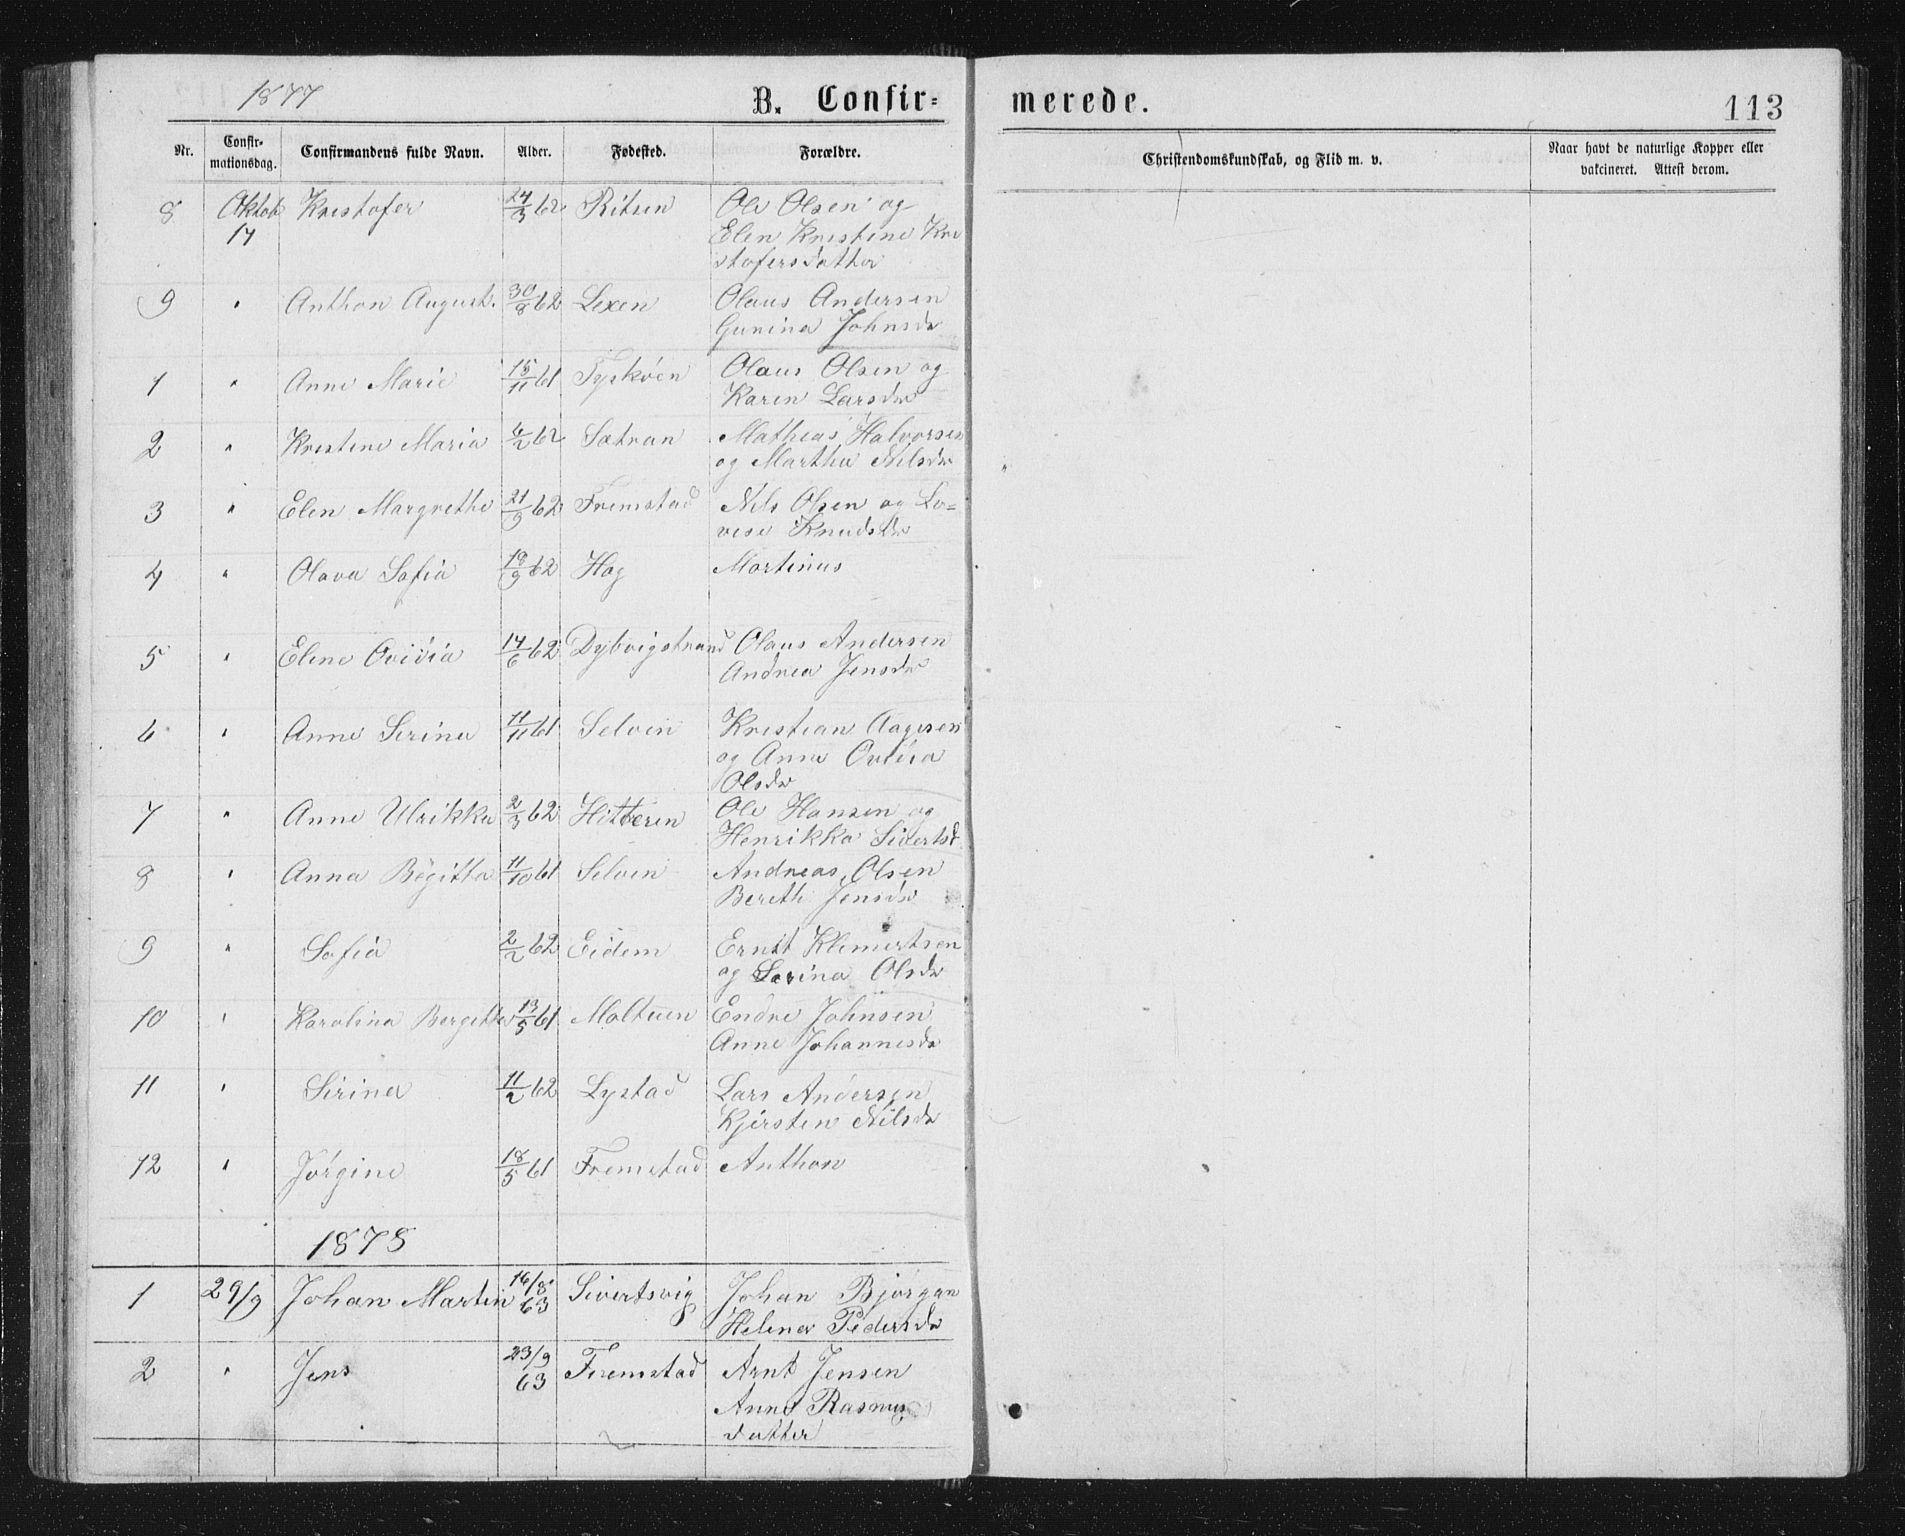 1877
B. Confir= merede. 113
Nr. Confir-mationsdag. Confirmandens fulde Navn. Alder. Fødested. Forældre. Christendomskundskab, og Flid m. v. Naar havt de naturlige Kopper eller vakcineret. Attest derom.
8 Oktob 17 Kristofer 24/3 62 Ritsen Ole Olsen og
Elen Kristine Kri
stofersdatter
9 " Anthon August. 30/8 62 Lexen Olaus Andersen
Gunina Johnsdr
1 " Anne Marie 15/11 61 Tyskøen Olaus Olsen og
Karen Larsdr
2 " Kristine Maria 6/2 62 Sætran Mathias Halvorsen
og Martha Nilsdr
3 " Elen Margrethe 21/9 62 Fremstad Nils Olsen og Lo=
vise Knudsdr
4 " Olava Sofia 19/9 62 Hog Martinus
5 " Eline Ovidia 17/6 62 Dybvigstrand Olaus Andersen
Andrea Jensdr
6 " Anne Serina 11/11 61 Selven Kristian Aagesen
og Anna Ovidia
Olsdr
7 " Anne Ulrikka 2/3 62 Hitteren Ole Hansen og
Henrikka Sivertsd
8 " Anna Begitta 11/10 61 Selven Andreas Olsen
Bereth Jensdr
9 " Sofia 2/2 62 Eidem Ernst Klemertsen
og Serina Olsdr
10 " Karolina Bergitta 13/5 61 Moltuen Endre Johnsen
Anne Johannesdr
11 " Sirina 11/2 62 Lystad Lars Andersen
Kjirsten Nilsdr
12 " Jørgine 18/5 61 Fremstad Anthon
1878
1 29/9 Johan Martin 16/8 63 Sivertsvig Johan Bjørgan
Helena Pedersdr
2 " Jens 23/9 63 Fremstad Arnt Jensen
Anne Rasmus
datter